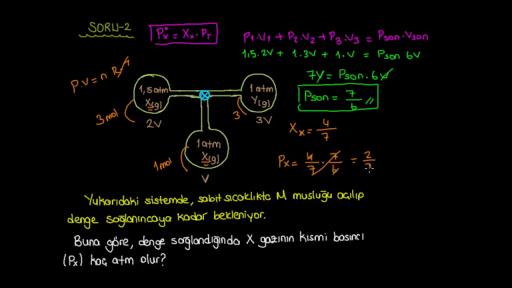 SORU-2
Px° = Xx . PT
P1.V1 + P2.V2 + P3.V3 = Pson.Vson
1,5.2V + 1.3V + 1.V = Pson 6V
P.V = n.R.T
7V = Pson.6V
Pson = 7/6 //
1,5 atm
X(g)
2V
3 mol
1 atm
Y(g)
3V
3
1 atm
X(g)
V
1 mol
Xx = 4/7
Px = 4/7 . 7/6 = 2/3
Yukarıdaki sistemde, sabit sıcaklıkta M musluğu açılıp
denge sağlanıncaya kadar bekleniyor.
Buna göre, denge sağlandığında X gazının kısmi basıncı
(Px) kaç atm olur?